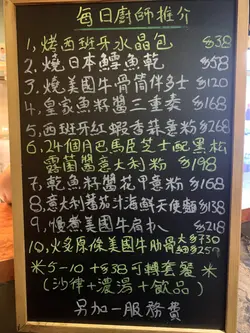 每日廚師推介
1, 烤西班牙水晶包 $38
2, 燒日本鱈魚乾 $58
3, 燒美國牛骨筒伴多士 $120
4, 皇家魚籽醬三重奏 $168
5, 西班牙紅蝦香蒜意粉 $168
6, 24個月巴馬臣芝士配黑松
露菌醬意大利粉 $198
7, 乾魚籽醬花甲意粉 $168
8, 意大利蕃茄汁海鮮天使麵 $138
9, 慢煮美國牛肩扒 $218
10, 火炙原條美國牛肋骨 大$730
細$250
*5-10 +$38可轉套餐*
(沙律+濃湯+飲品)
另加一服務費